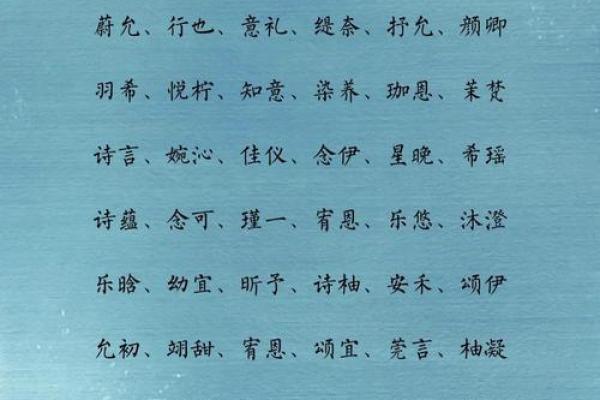 蔚允、行也、意礼、缇奈、抒允、颜卿
羽希、悦柠、知意、染养、珈恩、茉梵
诗言、婉沁、佳仪、念伊、星晚、希瑶
诗蕴、念可、瑾一、宥恩、乐悠、沐澄
乐晗、幼宜、昕予、诗柚、安禾、颂伊
允初、翊甜、宥恩、颂宜、莞言、柚凝